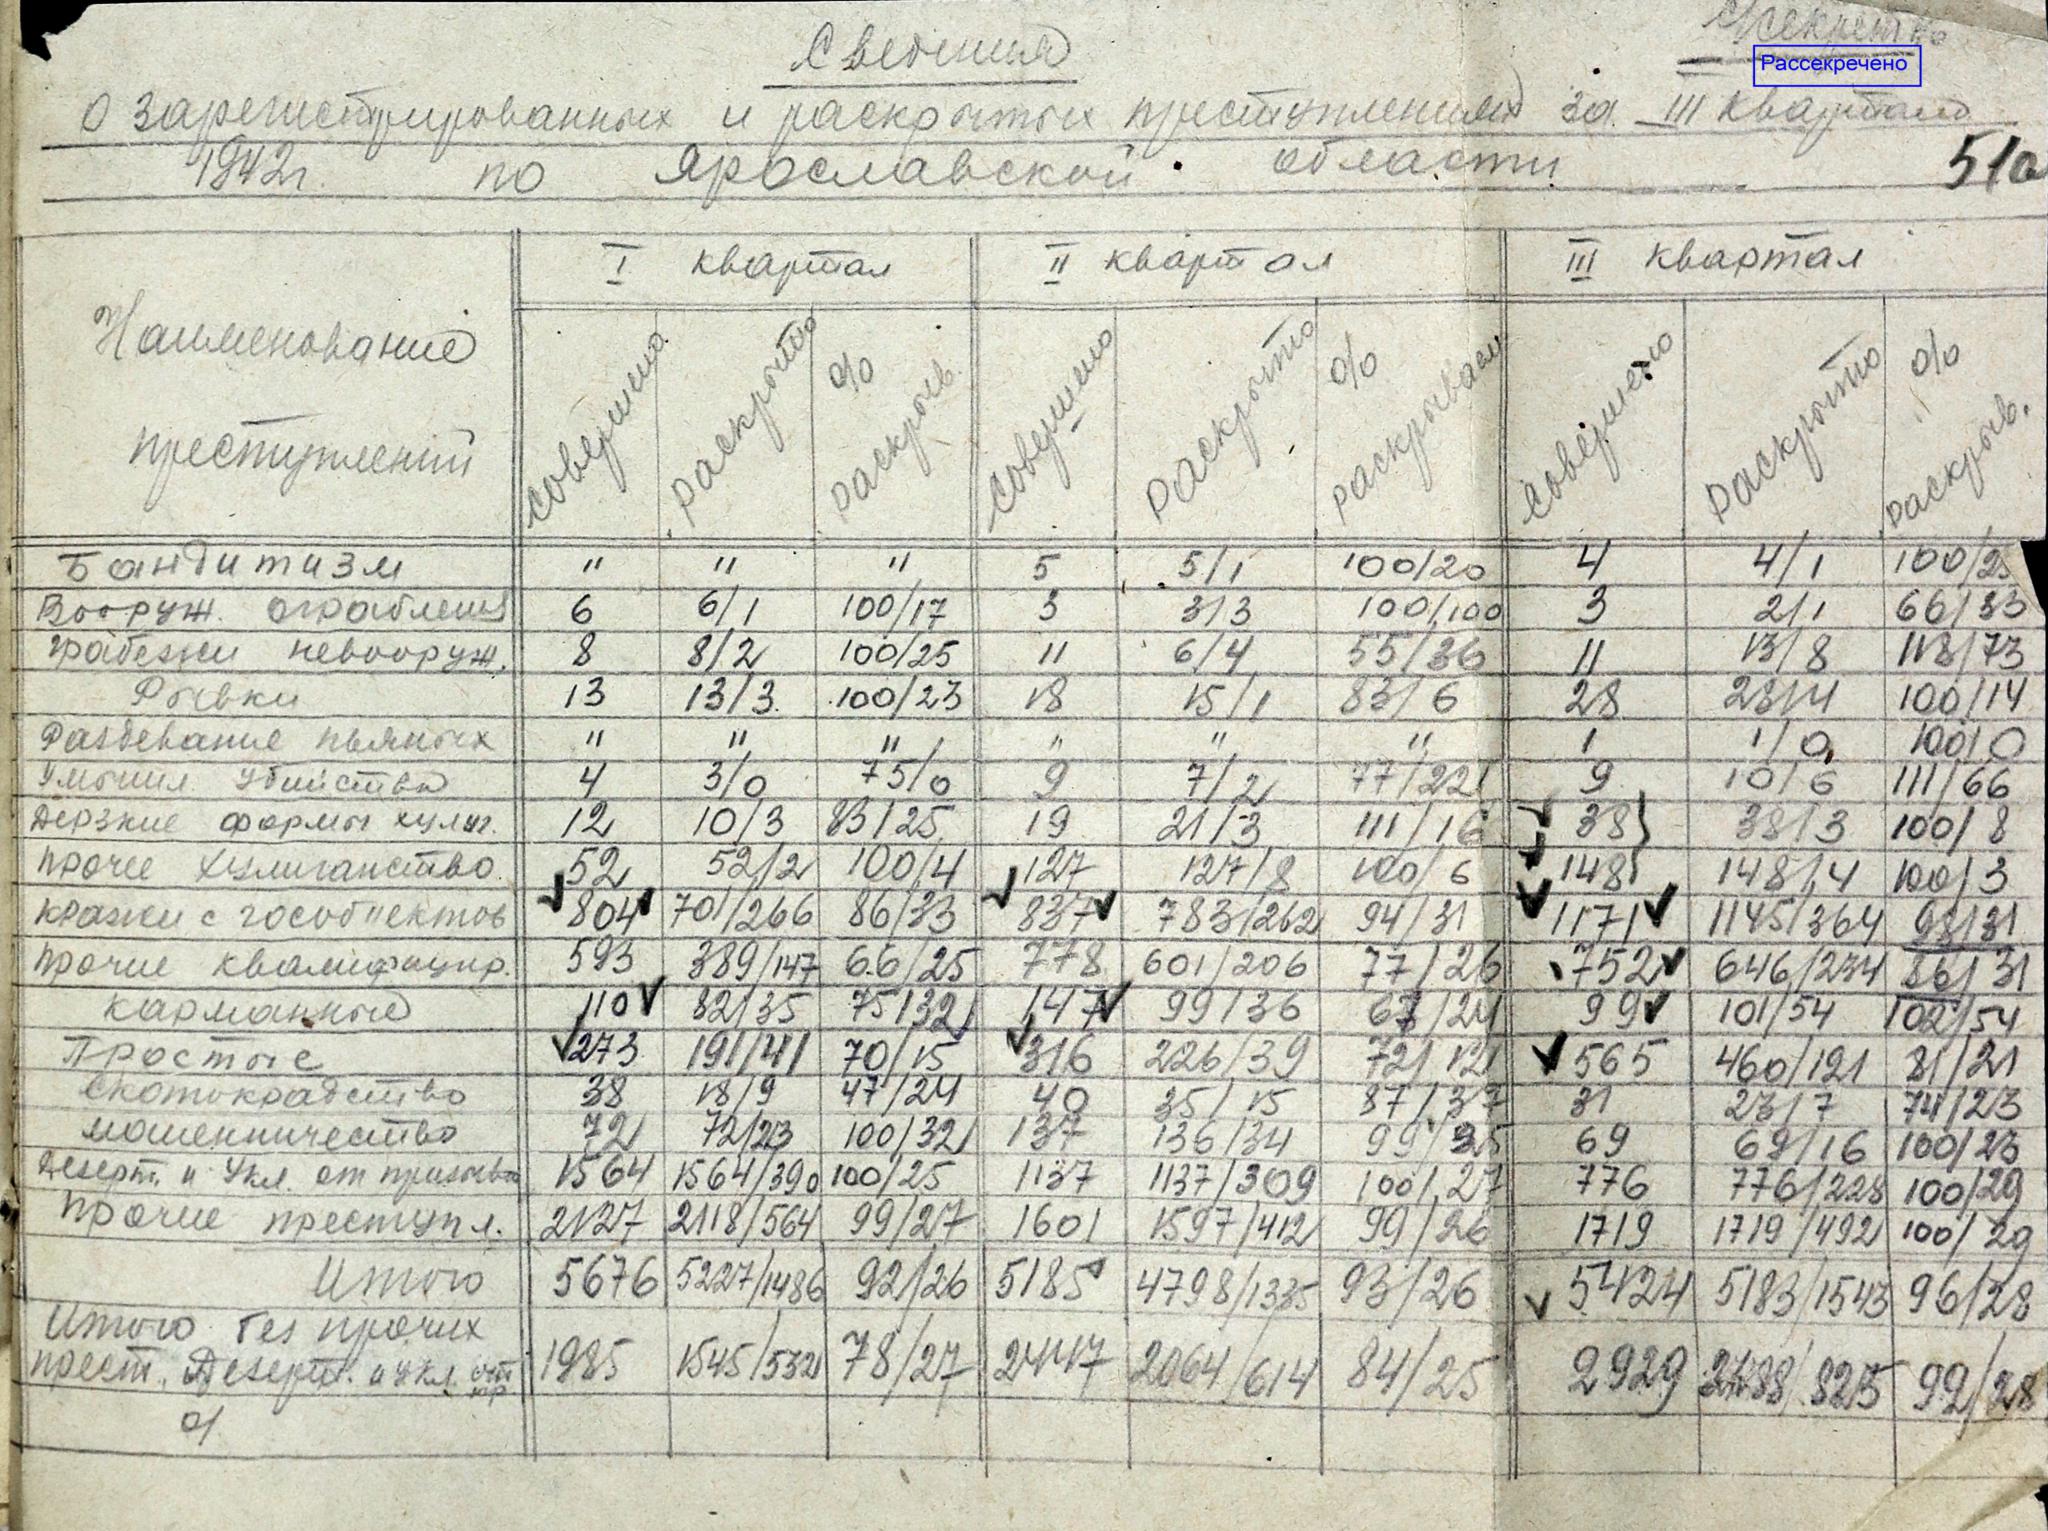 Сведения
Рассекречено
о зарегистрированных и раскрытых преступлениях за III квартал
1942г. по Ярославской области
51а
Наименование преступлений
I квартал II квартал III квартал
совершено раскрыто % раскрыв. совершено раскрыто % раскрываем совершено раскрыто % раскрыв.
Бандитизм " " " 5 5/1 100/20 4 4/1 100/25
Вооруж. ограбления 6 6/1 100/17 3 3/3 100/100 3 2/1 66/33
Грабежи невооруж. 8 8/2 100/25 11 6/4 55/36 11 13/8 118/73
Рывки 13 13/3 100/23 18 15/1 83/6 28 28/4 100/14
Раздевание пьяных " " " " " " 1 1/0 100/0
Умышл. убийства 4 3/0 75/0 9 7/2 77/22 9 10/6 111/66
Дерзкие формы хулиг. 12 10/3 83/25 19 21/3 111/16 38 38/3 100/8
Прочее хулиганство 52 52/2 100/4 127 127/8 100/6 148 148/4 100/3
Кражи с гособъектов 804 701/266 86/33 837 783/262 94/31 1171 1145/364 98/31
Прочие квалифицир. 593 389/147 66/25 778 601/206 77/26 752 646/234 86/31
Карманные 110 82/35 75/32 147 99/36 67/24 99 101/54 102/54
Простые 273 191/41 70/15 316 226/39 72/12 565 460/121 81/21
Скотокрадство 38 18/9 47/24 40 35/15 87/37 31 23/7 74/23
Мошенничество 72 72/23 100/32 137 136/34 99/25 69 69/16 100/23
Дезерт. и укл. от призыва 1564 1564/390 100/25 1137 1137/309 100/27 776 776/228 100/29
Прочие преступл. 2127 2118/564 99/27 1601 1597/412 99/26 1719 1719/492 100/29
Итого 5676 5227/1486 92/26 5185 4798/1335 93/26 5424 5183/1543 96/28
Итого без прочих
прест. Дезерт. и укл. от пр 1985 1545/532 78/27 2447 2064/614 84/25 2929 /825 92/28